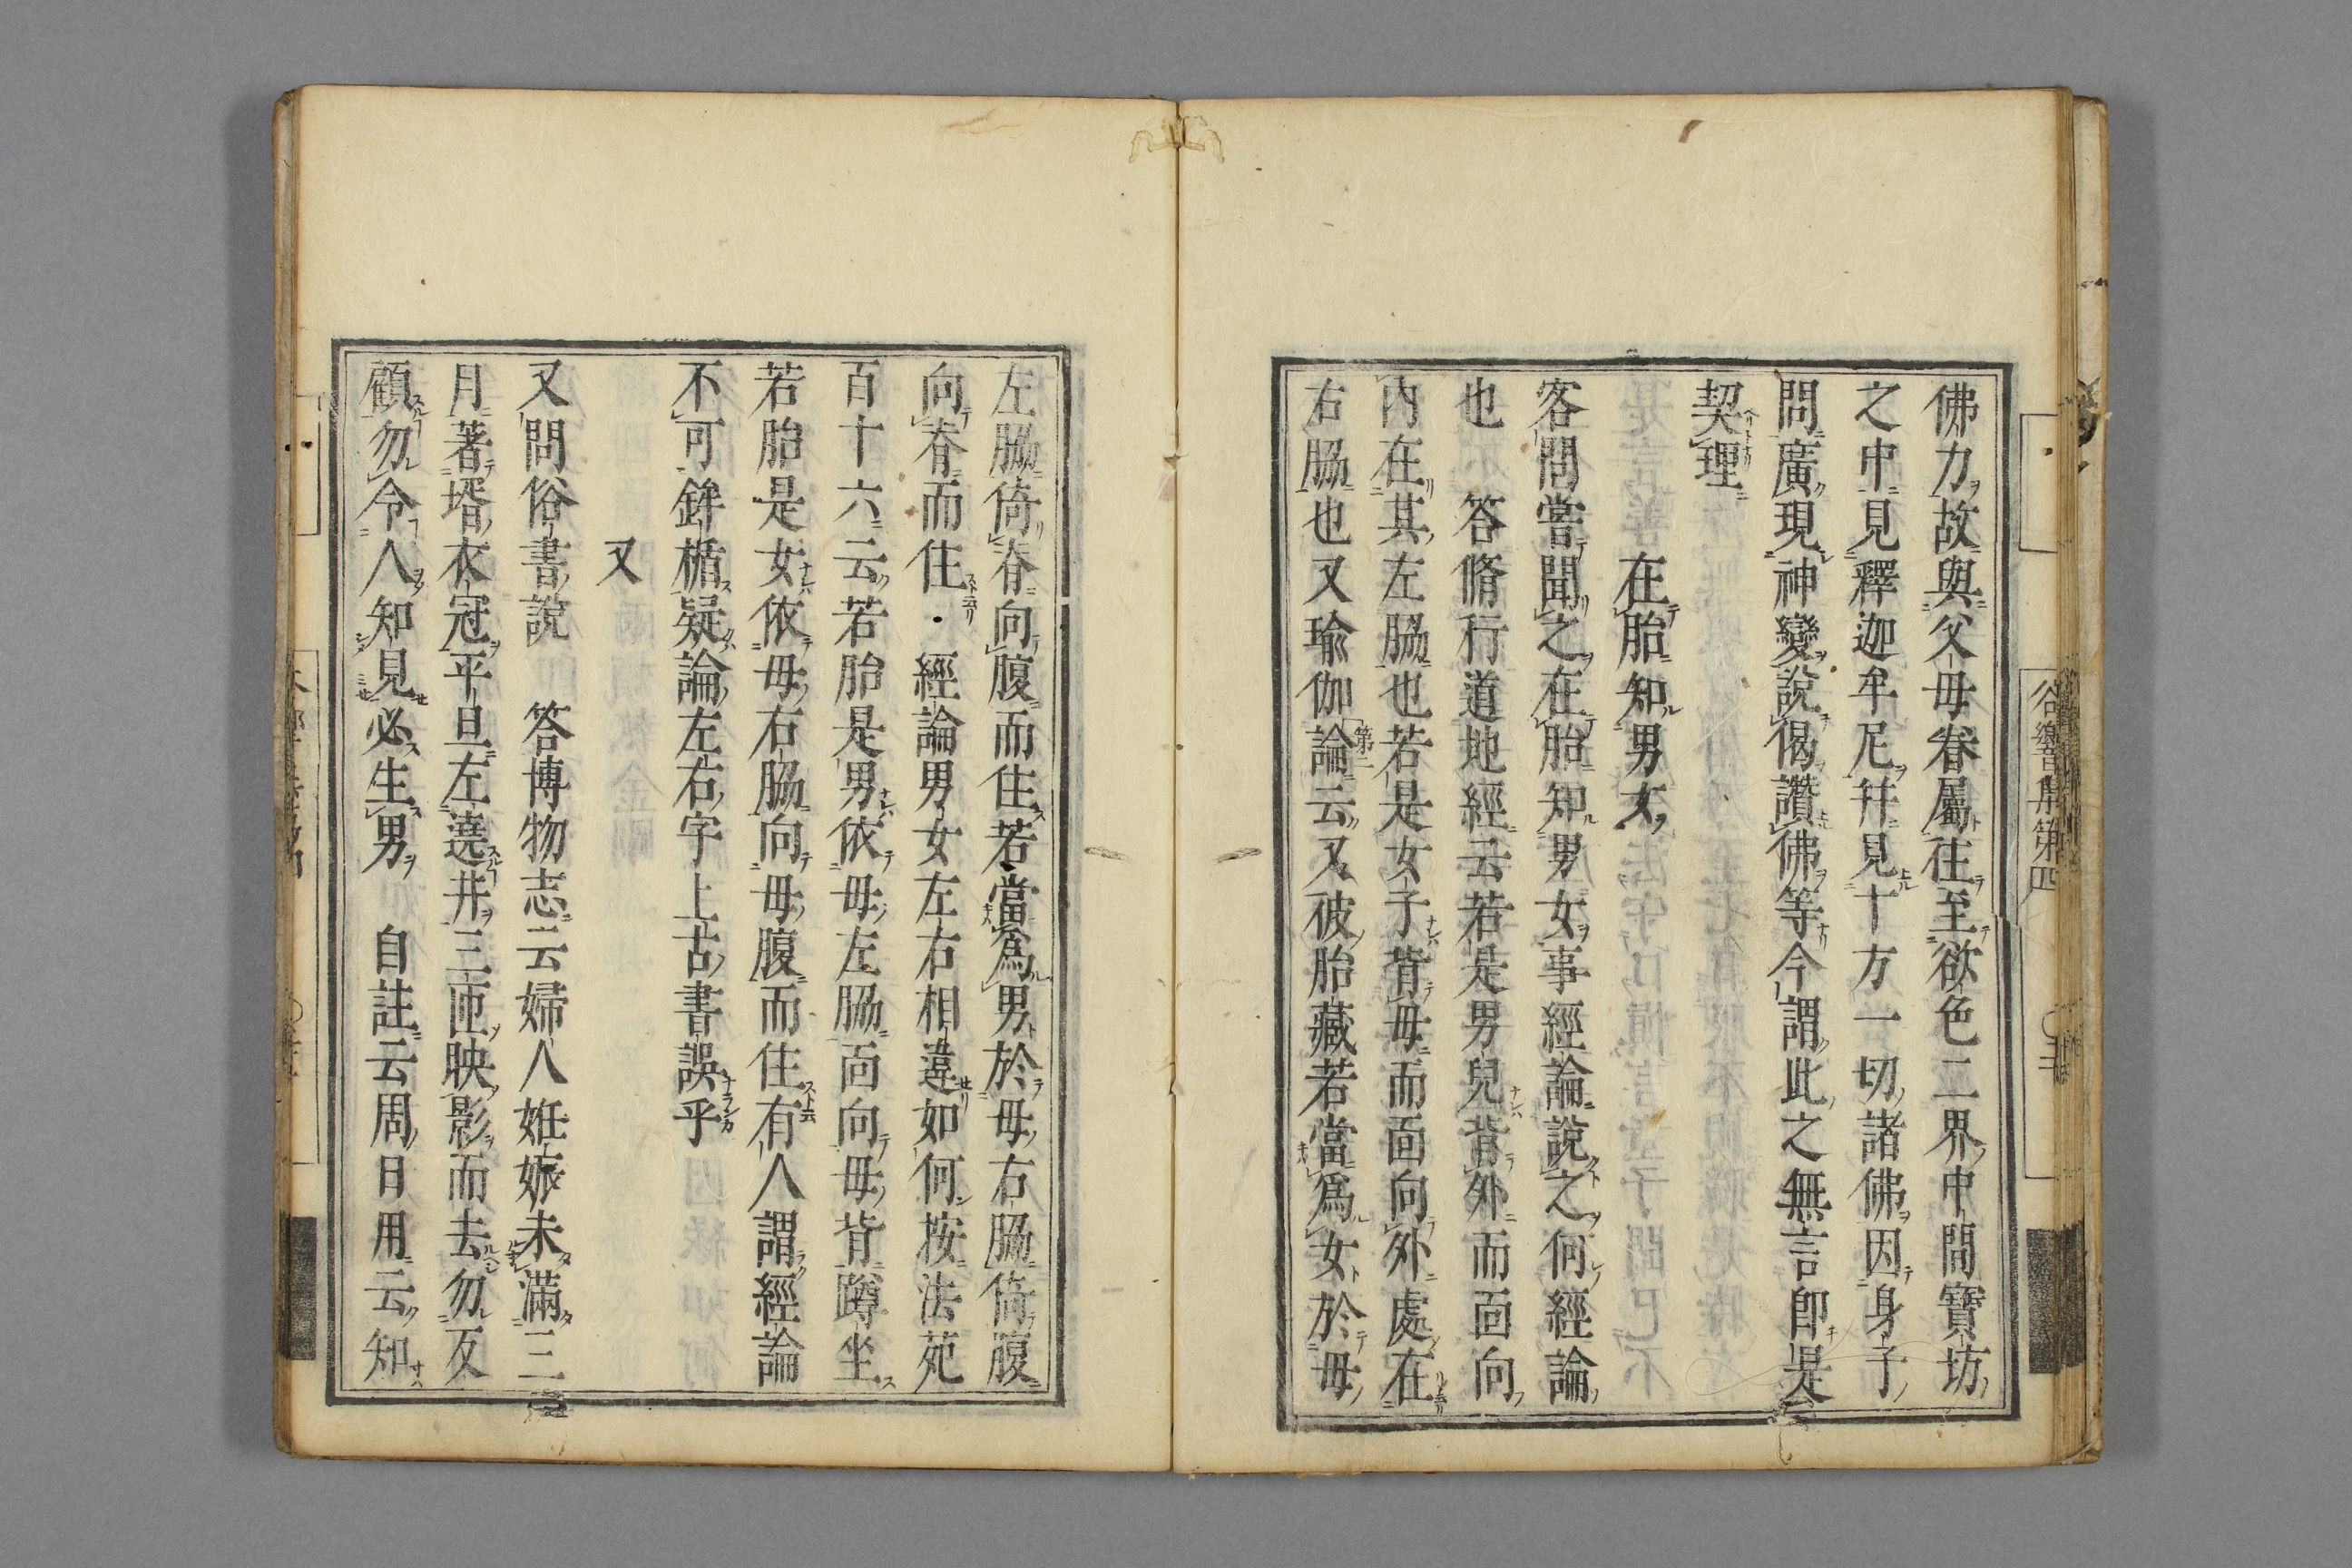 佛力故與父母眷屬徃至欲色二界中間寶坊
之中見釋迦牟尼幷見十方一切諸佛因身子
問廣現神變說偈讚佛等今謂此之無言卽是
契理
在胎知男女
客問嘗聞之在胎知男女事經論說之何經論
也　答脩行道地經云若是男兒背外而面向
內在其左脇也若是女子背母而面向外處在
右脇也又瑜伽論第二云又彼胎藏若當爲女於母
左脇倚脊向腹而住若當爲男於母右脇倚腹
向脊而住・經論男女左右相違如何按法苑
百十六云若胎是男依母左脇面向母背蹲坐
若胎是女依母右脇向母腹而住有人謂經論
不可鉾楯疑論左右字上古書誤乎
又
又問俗書說　答博物志云婦人姙娠未滿三
月著壻衣冠平旦左遶井三匝映影而去勿反
顧勿令人知見必生男　自註云周日用云知
谷響集第四